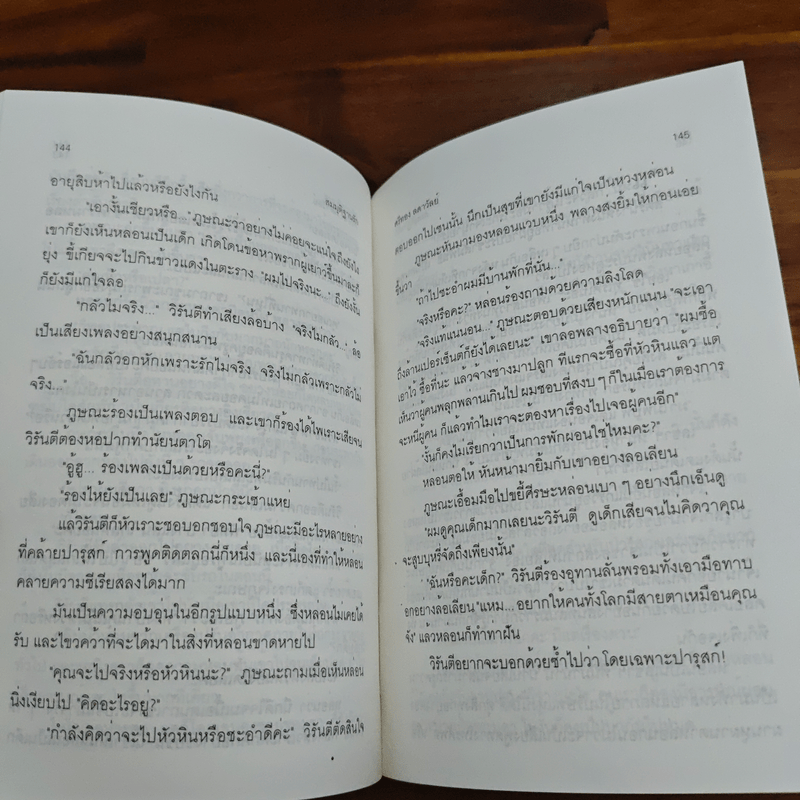 144
อายุสิบห้าไปแล้วหรือยังไงกัน
"เอางั้นเชียวหรือ..." ภูษณะว่าอย่างไม่ค่อยจะแน่ใจ ถึงยังไง
เขาก็ยังเห็นหล่อนเป็นเด็ก เกิดโดนข้อหาพรากผู้เยาว์ขึ้นมาละก็
ยุ่ง ขี้เกียจจะไปกินข้าวแดงในตะราง "ผมไปจริงนะ..." ถึงยังงั้น
ก็ยังมีแก่ใจล้อ
"กลัวไม่จริง..." วิรันตีทำเสียงล้อบ้าง "จริงไม่กลัว" ล้อ
เป็นเสียงเพลงอย่างสนุกสนาน
"ฉันกลัวอกหักเพราะรักไม่จริง จริงไม่กลัวเพราะกลัวไม่
จริง..."
ภูษณะร้องเป็นเพลงตอบ และเขาก็ร้องได้ไพเราะเสียจน
วิรันตีต้องห่อปากทำนัยน์ตาโต
"อู้ฮู... ร้องเพลงเป็นด้วยหรือคะนี่?"
"ร้องไห้ยังเป็นเลย" ภูษณะกระเซ้าแหย่
แล้ววิรันตีก็หัวเราะชอบอกชอบใจ ภูษณะมีอะไรหลายอย่าง
ที่คล้ายปารุสก์ การพูดติดตลกนี่ก็หนึ่ง และนี่เองที่ทำให้หล่อน
คลายความซีเรียสลงได้มาก
มันเป็นความอบอุ่นในอีกรูปแบบหนึ่ง ซึ่งหล่อนไม่เคยได้
รับ และไขว่คว้าที่จะได้มาในสิ่งที่หล่อนขาดหายไป
"คุณจะไปจริงหรือหัวหินน่ะ?" ภูษณะถามเมื่อเห็นหล่อน
นิ่งเงียบไป "คิดอะไรอยู่?"
"กำลังคิดว่าจะไปหัวหินหรือชะอำดีค่ะ" วิรันตีตัดสินใจ
145
ศรีทอง ลดาวัลย์
ตอบออกไปเช่นนั้น นึกเป็นสุขที่เขายังมีแก่ใจเป็นห่วงหล่อน
ภูษณะหันมามองหล่อนแวบหนึ่ง พลางส่งยิ้มให้ก่อนเอ่ย
ขึ้นว่า
"ถ้าไปชะอำผมมีบ้านพักที่นั่น..."
"จริงหรือคะ?" หล่อนร้องถามด้วยความลิงโลด
"จริงแท้แน่นอน..." ภูษณะตอบด้วยเสียงหนักแน่น "จะเอา
ถึงล้านเปอร์เซ็นต์ก็ยังได้เลยนะ" เขาล้อพลางอธิบายว่า "ผมซื้อ
เอาไว้ ซื้อที่น่ะ แล้วจ้างช่างมาปลูก ที่แรกจะซื้อที่หัวหินแล้ว แต่
เห็นว่าผู้คนพลุกพลานเกินไป ผมชอบที่สงบๆ ก็ในเมื่อเราต้องการ
จะหนีผู้คน ก็แล้วทำไมเราจะต้องหาเรื่องไปเจอผู้คนอีก"
"งั้นก็คงไม่เรียกว่าเป็นการพักผ่อนใช่ไหมคะ?"
หล่อนต่อให้ หันหน้ามายิ้มกับเขาอย่างล้อเลียน
ภูษณะเอื้อมมือไปขยี้ศีรษะหล่อนเบา ๆ อย่างนึกเอ็นดู
"ผมดูคุณเด็กมากเลยนะวิรันตี ดูเด็กเสียจนไม่คิดว่าคุณ
จะสูบบุหรี่จัดถึงเพียงนั้น"
"ฉันหรือคะเด็ก?" วิรันตีร้องอุทานลั่นพร้อมทั้งเอามือทาบ
อกอย่างล้อเลียน "แหม... อยากให้คนทั้งโลกมีสายตาเหมือนคุณ
จัง" แล้วหล่อนก็ทำท่าฝัน
วิรันตีอยากจะบอกด้วยซ้ำไปว่า โดยเฉพาะปารุสก์!